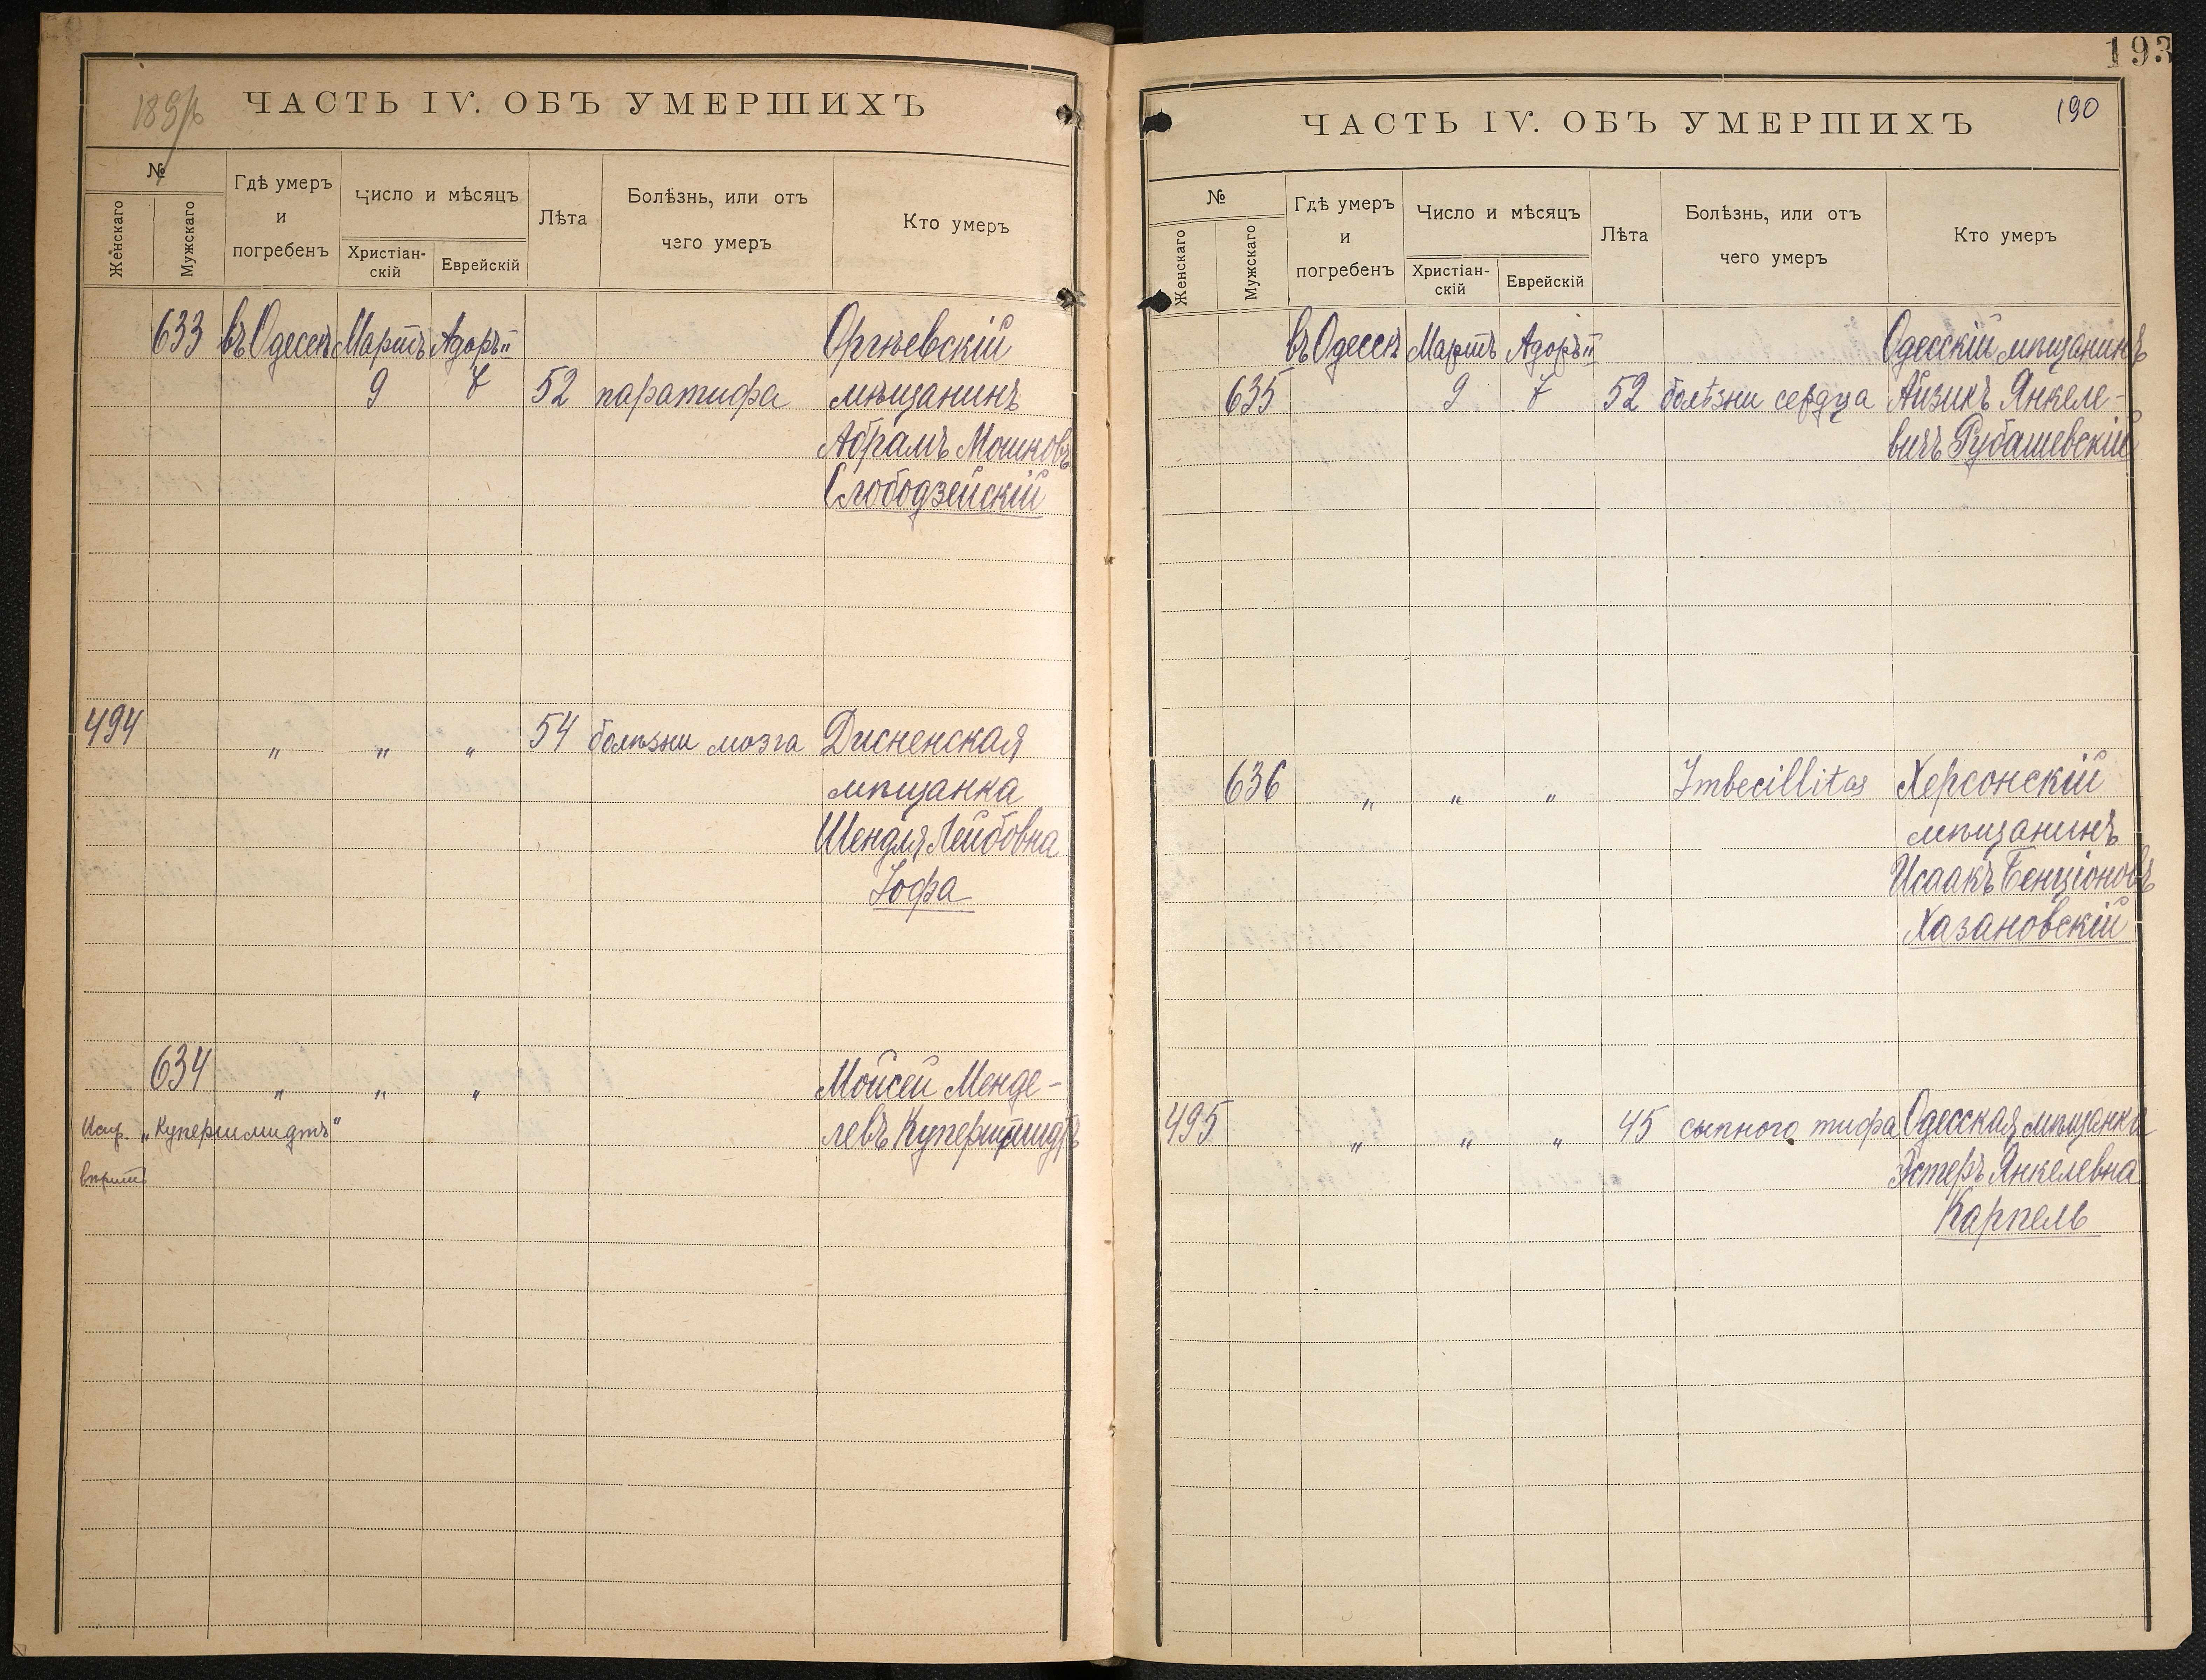 193
189
ЧАСТЬ IV. ОБЪ УМЕРШИХЪ
№
Женскаго
Мужскаго
Гдѣ умеръ
и
погребенъ
Число и мѣсяцъ
Христіан-
скій
Еврейскій
Лѣта
Болѣзнь, или отъ
чего умеръ
Кто умеръ
633 въ Одессѣ Мартъ Адоръ II Оргѣевскій
9 7 52 паратифа мѣщанинъ
Абрамъ Мошковъ
Слободзейскій
494 " " " 54 болѣзни мозга Дисненская
мѣщанка
Шендля Лейбовна
Іофа
634 " " " Мойсей Менде-
Испр. „Купершмидтъ" левъ Купершмидтъ
вѣрить
190
ЧАСТЬ IV. ОБЪ УМЕРШИХЪ
№
Женскаго
Мужскаго
Гдѣ умеръ
и
погребенъ
Число и мѣсяцъ
Христіан-
скій
Еврейскій
Лѣта
Болѣзнь, или отъ
чего умеръ
Кто умеръ
въ Одессѣ Мартъ Адоръ II Одесскій мѣщанинъ
635 9 7 52 болѣзни сердца Айзикъ Янкеле-
вичъ Рубашевскій
636 " " " Imbecillitas Херсонскій
мѣщанинъ
Исаакъ Бенціоновъ
Хазановскій
495 " " " 45 сыпного тифа Одесская мѣщанка
Эстеръ Янкелевна
Карпель